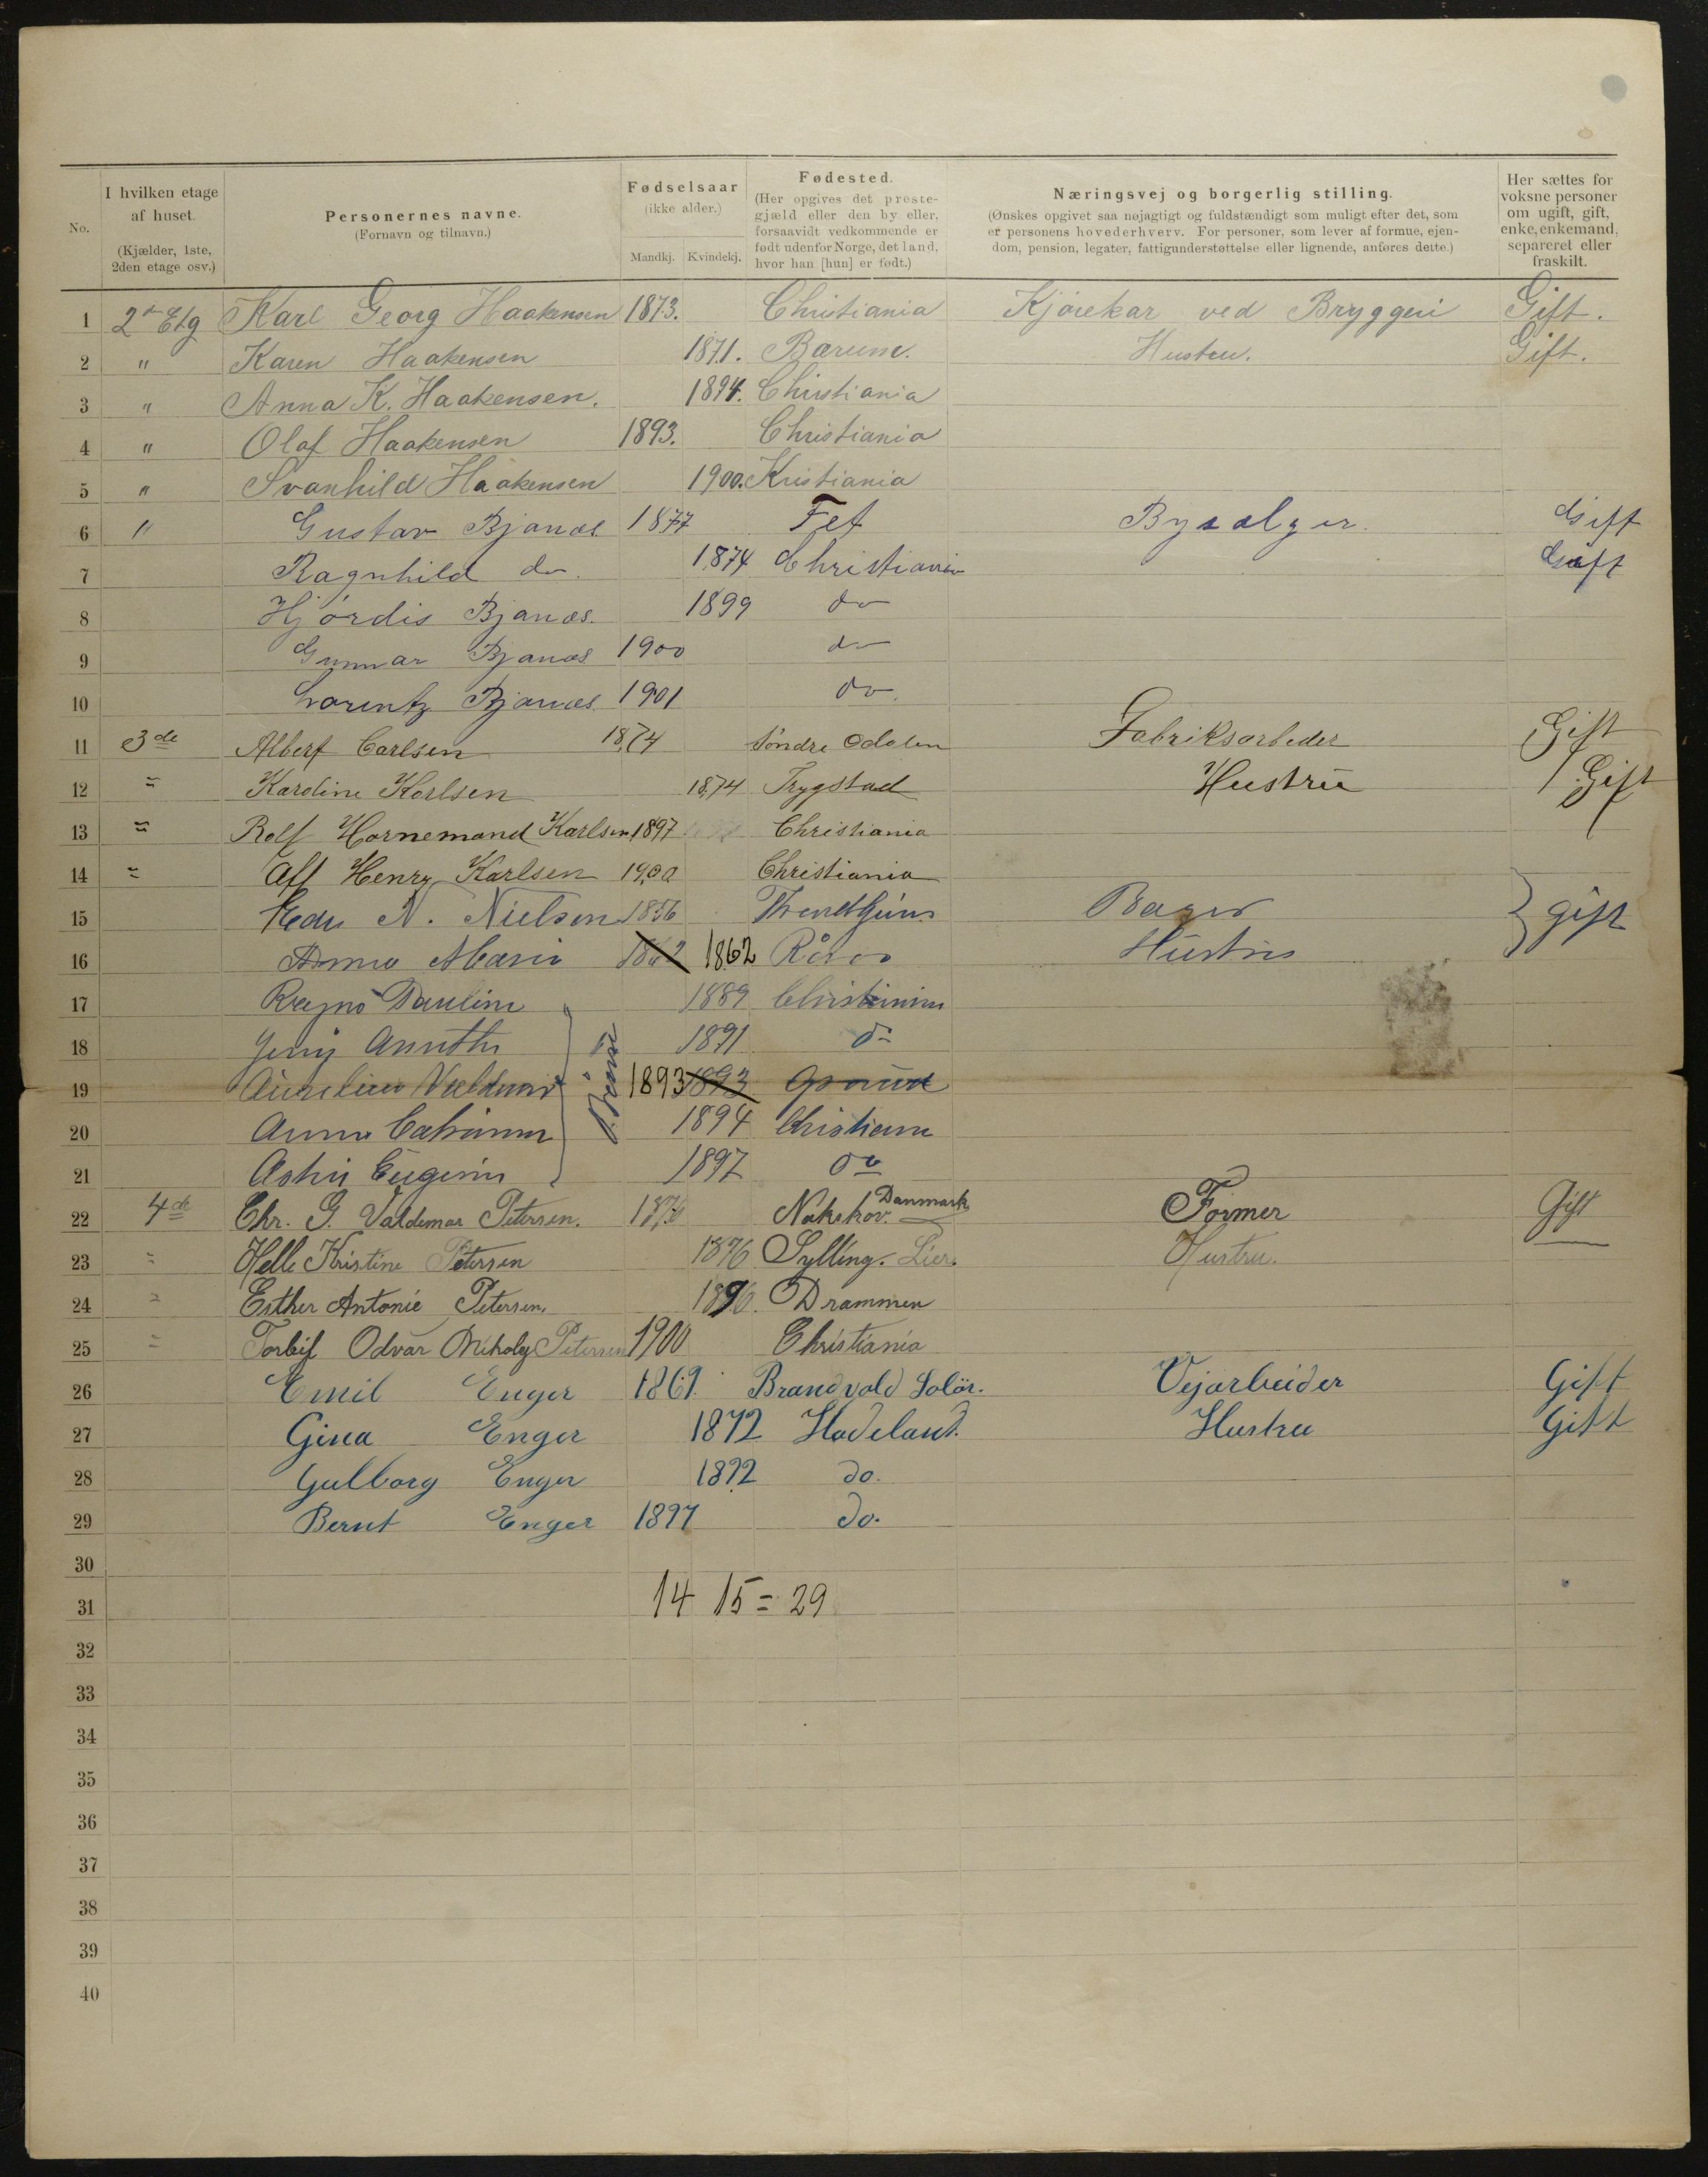 No. I hvilken etage af huset. (Kjælder, 1ste, 2den etage osv.) Personernes navne. (Fornavn og tilnavn.) Fødselsaar (ikke alder.) Mandkj. Kvindekj. Fødested. (Her opgives det prestegjæld eller den by eller, forsaavidt vedkommende er født udenfor Norge, det land, hvor han [hun] er født.) Næringsvej og borgerlig stilling. (Ønskes opgivet saa nøjagtigt og fuldstændigt som muligt efter det, som er personens hovederhverv. For personer, som lever af formue, ejendom, pension, legater, fattigunderstøttelse eller lignende, anføres dette.) Her sættes for voksne personer om ugift, gift, enke, enkemand, separeret eller fraskilt.
1 2den Etg Karl Georg Haakensen 1873. Christiania Kjørekar ved Bryggeri Gift.
2 " Karen Haakensen 1871. Bærum. Hustru. Gift.
3 " Anna K. Haakensen. 1894. Christiania
4 " Olaf Haakensen 1893. Christiania
5 " Svanhild Haakensen 1900. Kristiania
6 " Gustav Bjanæs 1877 Fet Bysælger. Gift
7 Ragnhild do. 1874 Christiania Gift
8 Hjørdis Bjanæs. 1899 do
9 Gunnar Bjanæs 1900 do
10 Lorentz Bjanæs 1901 do.
11 3de Albert Carlsen 1874 Søndre Odalen Fabriksarbeder Gift
12 " Karoline Karlsen 1874 Trygstad Hustru Gift
13 " Rolf Hornemand Karlsen 1897 Christiania
14 " Alf Henry Karlsen 1900 Christiania
15 N. Nielsen 1856 Trondhjem Bager } gift
16 Anna Maria 1862 1862 Røros Hustru
17 Ragna Pauline 1889 Christiania
18 Jenny 1891 do
19 Valdemar 1893 1893
20 Anna 1894 Christiania
21 Eugenie 1897 do
22 4de Chr. G. Valdemar Petersen. 1876 Nakskov. Danmark Former Gift
23 " Helle Kristine Petersen 1876 Sylling. Lier. Hustru.
24 " Esther Antonie Petersen. 1896. Drammen
25 " Odvar Petersen 1900 Christiania
26 Emil Enger 1869. Brandvold Solør. Vejarbeider Gift
27 Gina Enger 1872 Hadeland. Hustru Gift
28 Gulborg Enger 1892 do.
29 Bernt Enger 1897 do.
30
31 14 15 = 29
32
33
34
35
36
37
38
39
40